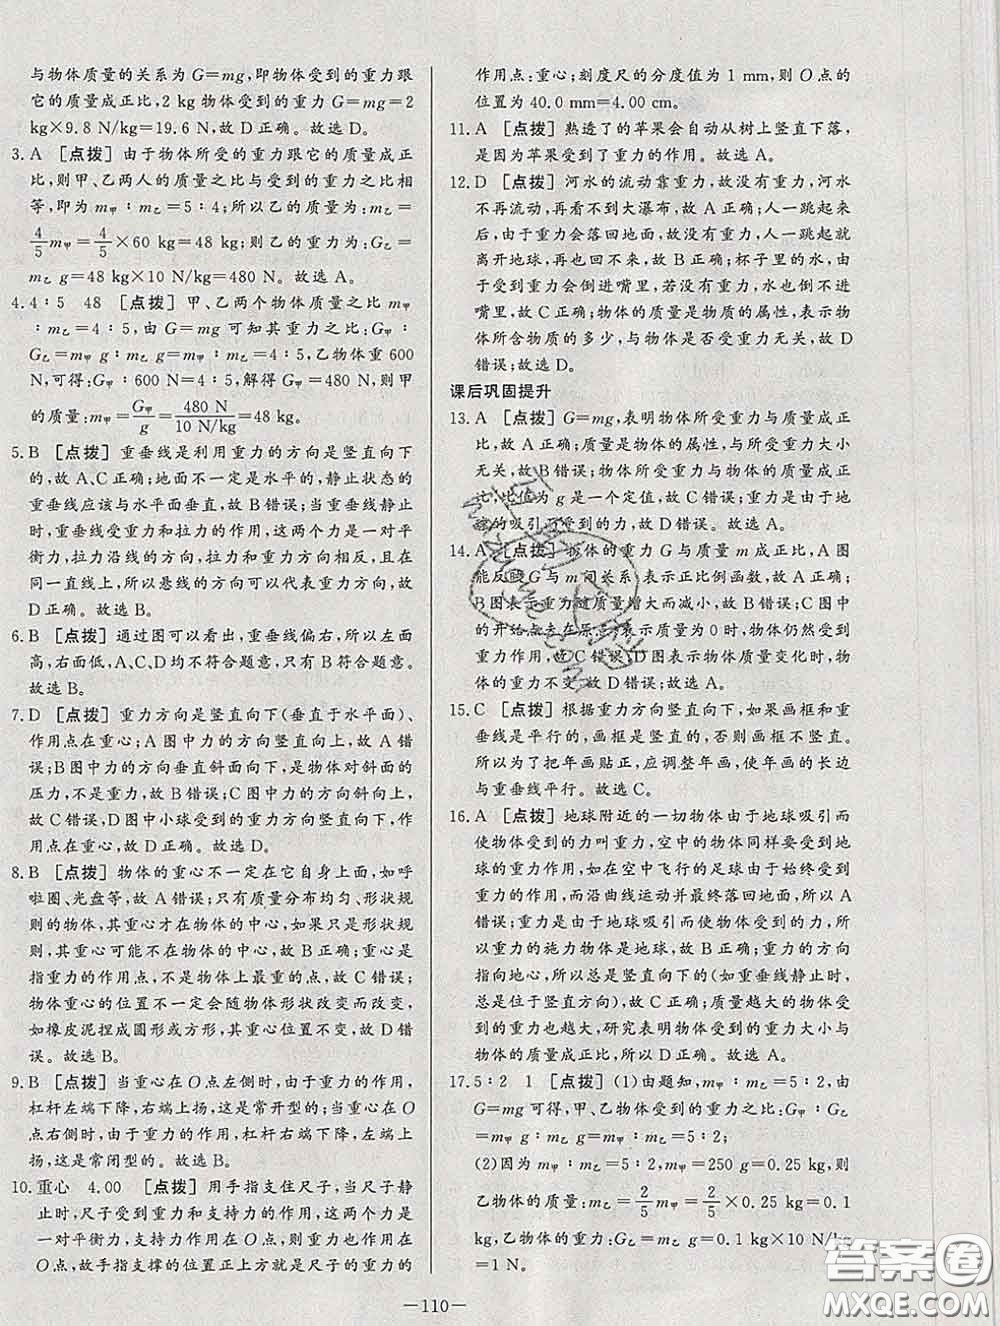 与物体质量的关系为G=mg,即物体受到的重力跟
它的质量成正比,2 kg物体受到的重力G=mg=2
kg×9.8 N/kg=19.6 N,故D正确。故选D。
3. A [点拨] 由于物体所受的重力跟它的质量成正
比,则甲、乙两人的质量之比与受到的重力之比相
等,即为m甲∶m乙=5∶4;所以乙的质量为:m乙=
4/5 m甲=4/5×60 kg=48 kg;则乙的重力为:G乙=
m乙 g=48 kg×10 N/kg=480 N。故选A。
4. 4∶5 48 [点拨] 甲、乙两个物体质量之比m甲
∶m乙=4∶5,由G=mg可知其重力之比:G甲∶
G乙=m甲 g∶m乙 g=4∶5,乙物体重600
N,可得:G甲∶600 N=4∶5,解得G甲=480 N,则甲
的质量:m甲=G甲/g=480 N/10 N/kg=48 kg。
5. B [点拨] 重垂线是利用重力的方向是竖直向下
的,故A、C正确;地面不一定是水平的,静止状态的
重垂线应该与水平面垂直,故B错误;当重垂线静止
时,重垂线受重力和拉力的作用,这两个力是一对平
衡力,拉力沿线的方向,拉力与重力方向相反,且在
同一直线上,所以悬线的方向可以代表重力方向,故
D正确。故选B。
6. B [点拨] 通过图可以看出,重垂线偏右,所以左面
高,右面低,A、C、D均不符合题意,只有B符合题意。
故选B。
7. D [点拨] 重力方向是竖直向下(垂直于水平面)、
作用点在重心;A图中力的方向竖直向上,故A错
误;B图中力的方向垂直斜面向下,是物体对斜面的
压力,不是重力,故B错误;C图中力的方向斜向上,
故C错误;D图中小球受到的重力方向竖直向下,
作用点在重心,故D正确。故选D。
8. B [点拨] 物体的重心不一定在它自身上面,如呼
啦圈、光盘等,故A错误;只有质量分布均匀、形状规
则的物体,其重心才在物体的中心,如果只是形状规
则,其重心可能不在物体的中心,故B正确;重心是
指重力的作用点,不是物体上最重的点,故C错误;
物体重心的位置不一定会随物体形状改变而改变,
如橡皮泥捏成圆形或方形,其重心位置不变,故D错
误。故选B。
9. B [点拨] 当重心在O点左侧时,由于重力的作用,
杠杆左端下降,右端上扬,这是常开型的;当重心在O
点右侧时,由于重力的作用,杠杆右端下降,左端上
扬,这是常闭型的。故选B。
10. 重心 4.00 [点拨] 用手指支住尺子,当尺子静
止时,尺子受到重力和支持力的作用,这两个力是
一对平衡力,支持力作用在O点,所以重力也作用在
O点,故手指支撑的位置正上方就是尺子的重力的
作用点:重心;刻度尺的分度值为1 mm,则O点的
位置为40.0 mm=4.00 cm。
11. A [点拨] 熟透了的苹果会自动从树上竖直下落,
是因为苹果受到了重力的作用。故选A。
12. D [点拨] 河水的流动靠重力,故没有重力,河水
不再流动,再看不到大瀑布,故A正确;人一跳起来
后,由于重力会落回地面,故没有重力,人一跳起就
离开地球,再也回不来,故B正确;杯子里的水,由
于受到重力会倒进嘴里,若没有重力,水也倒不进
嘴里,故C正确;物体的质量是物质的属性,表示物
体所含物质的多少,与物体是否受重力无关,故D
错误;故选D。
课后巩固提升
13. A [点拨] G=mg,表明物体所受重力与质量成正
比,故A正确;质量是物体的属性,与所受重力大小
无关,故B错误;物体所受重力与物体的质量成正
比,比值为g是一个定值,故C错误;重力是由于地
球的吸引而受到的力,故D错误。故选A。
14. A [点拨] 物体的重力G与质量m成正比,A图
能反映G与m间关系;表示正比例函数,故A正确;
B图表示重力随质量增大而减小,故B错误;C图中
的开始点未在原点,表示质量为0时,物体仍然受到
重力作用,故C错误;D图表示物体质量变化时,物
体的重力不变,故D错误;故选A。
15. C [点拨] 根据重力方向竖直向下,如果画框和重
垂线是平行的,画框是竖直的,否则画框不竖直。
所以为了把年画贴正,应调整年画,使年画的长边
与重垂线平行。故选C。
16. A [点拨] 地球附近的一切物体由于地球吸引而
使物体受到的力叫重力,空中的物体同样要受到地
球的重力的作用,如在空中飞行的足球由于受到
重力的作用,而沿曲线运动并最终落回地面,所以A
错误;重力是由于地球吸引而使物体受到的力,所
以重力的施力物体是地球,故B正确;重力的方向
指向地心,所以总是竖直向下的(如重垂线静止时,
总是沿竖直方向),故C正确;质量越大的物体受
到的重力也越大,研究表明物体受到的重力大小与
物体的质量成正比,所以D正确。故选A。
17. 5∶2 1 [点拨] (1)由题知,m甲∶m乙=5∶2,由
G=mg可得,甲、乙物体受到的重力之比:G甲∶G乙
=m甲 g∶m乙 g=m甲∶m乙=5∶2;
(2)因为m甲∶m乙=5∶2,m甲=250 g=0.25 kg,则
乙物体的质量:m乙=2/5 m甲=2/5×0.25 kg=0.1
kg,乙物体的重力:G乙=m乙 g=0.1 kg×10 N/kg
=1 N。
—110—
答案圈
MXQE.COM